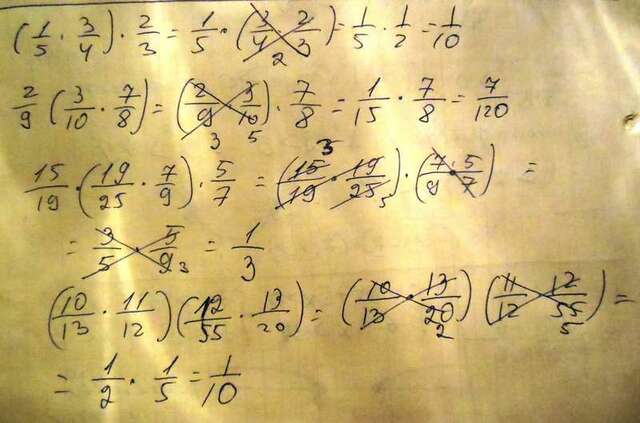 (1/5 · 3/4) · 2/3 = 1/5 · (3/4 · 2/3) = 1/5 · 1/2 = 1/10
2/9 (3/10 · 7/8) = (2/9 · 3/10) · 7/8 = 1/15 · 7/8 = 7/120
15/19 · (19/25 · 7/9) · 5/7 = (15/19 · 19/25) · (7/9 · 5/7) =
= 3/5 · 5/9 = 1/3
(10/13 · 11/12) (12/55 · 13/20) = (10/13 · 13/20) (11/12 · 12/55) =
= 1/2 · 1/5 = 1/10